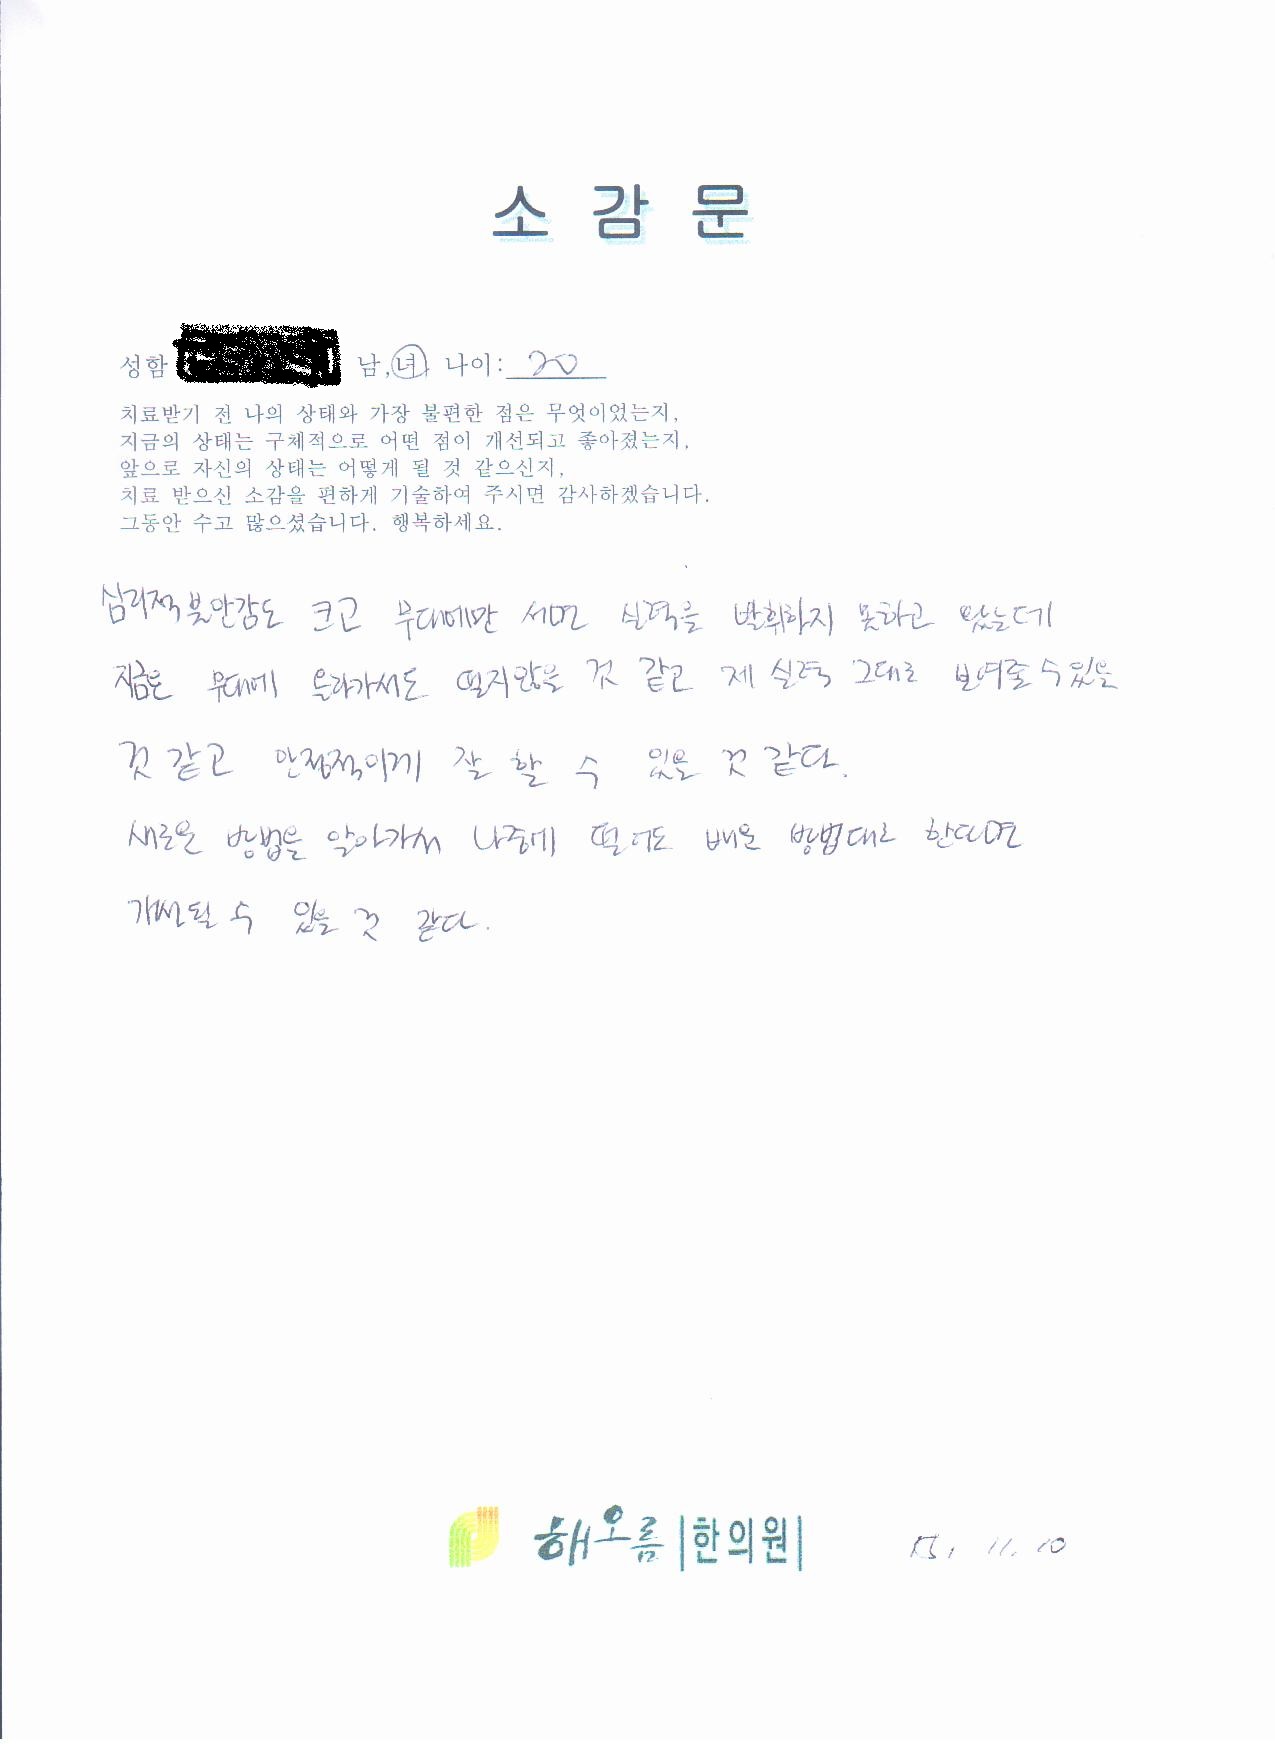 소 감 문
성함 남,녀 나이: 20
치료받기 전 나의 상태와 가장 불편한 점은 무엇이었는지,
지금의 상태는 구체적으로 어떤 점이 개선되고 좋아졌는지,
앞으로 자신의 상태는 어떻게 될 것 같으신지,
치료 받으신 소감을 편하게 기술하여 주시면 감사하겠습니다.
그동안 수고 많으셨습니다. 행복하세요.
심리적 불안감도 크고 무대에만 서면 실력을 발휘하지 못하고 왔는데
지금은 무대에 올라가서도 떨지않을 것 같고 제 실력 그대로 보여줄 수 있을
것 같고 안정적이게 잘 할 수 있을 것 같다.
새로운 방법을 알아가서 나중에 떨어도 배운 방법대로 한다면
개선될 수 있을 것 같다.
해오름|한의원| 15, 11. 10